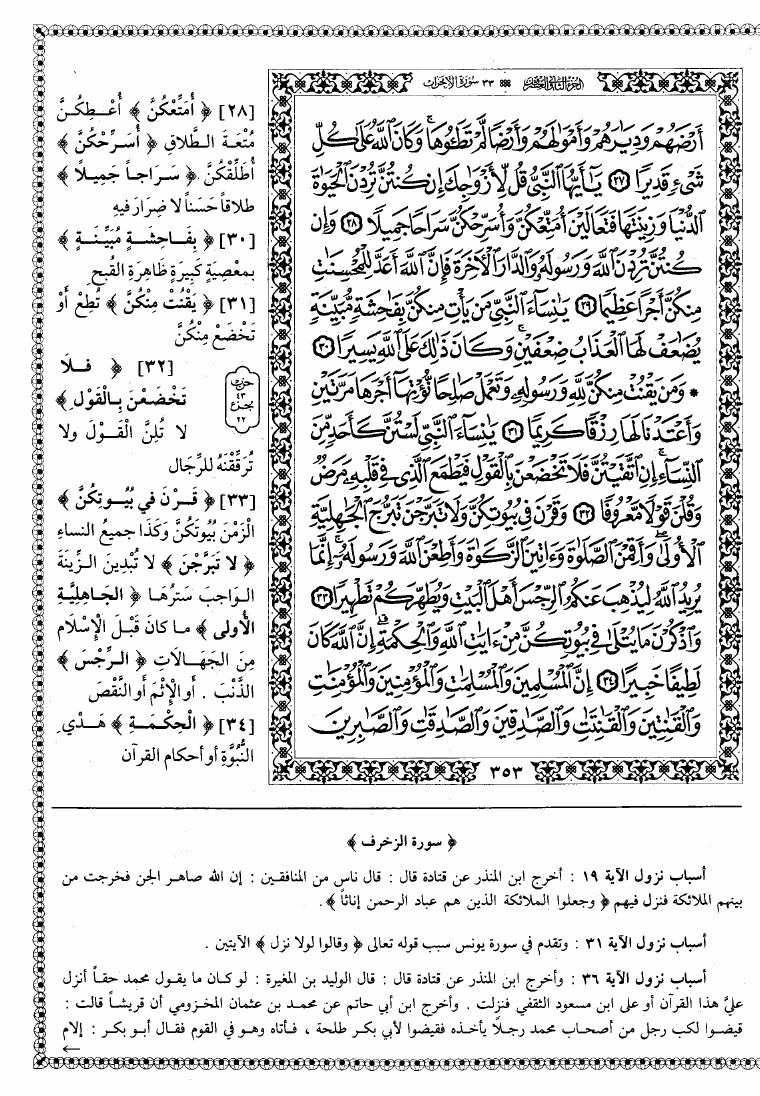 الجزء الثاني والعشرون ٣٣ سورة الأحزاب
أَرْضَهُمْ وَدِيَارَهُمْ وَأَمْوَالَهُمْ وَأَرْضًا لَّمْ تَطَـُٔوهَا ۚ وَكَانَ ٱللَّهُ عَلَىٰ كُلِّ
شَىْءٍ قَدِيرًا ٢٧ يَـٰٓأَيُّهَا ٱلنَّبِىُّ قُل لِّأَزْوَٰجِكَ إِن كُنتُنَّ تُرِدْنَ ٱلْحَيَوٰةَ
ٱلدُّنْيَا وَزِينَتَهَا فَتَعَالَيْنَ أُمَتِّعْكُنَّ وَأُسَرِّحْكُنَّ سَرَاحًا جَمِيلًا ٢٨ وَإِن
كُنتُنَّ تُرِدْنَ ٱللَّهَ وَرَسُولَهُۥ وَٱلدَّارَ ٱلْـَٔاخِرَةَ فَإِنَّ ٱللَّهَ أَعَدَّ لِلْمُحْسِنَـٰتِ
مِنكُنَّ أَجْرًا عَظِيمًا ٢٩ يَـٰنِسَآءَ ٱلنَّبِىِّ مَن يَأْتِ مِنكُنَّ بِفَـٰحِشَةٍ مُّبَيِّنَةٍ
يُضَـٰعَفْ لَهَا ٱلْعَذَابُ ضِعْفَيْنِ ۚ وَكَانَ ذَٰلِكَ عَلَى ٱللَّهِ يَسِيرًا ٣٠
* وَمَن يَقْنُتْ مِنكُنَّ لِلَّهِ وَرَسُولِهِۦ وَتَعْمَلْ صَـٰلِحًا نُّؤْتِهَآ أَجْرَهَا مَرَّتَيْنِ
وَأَعْتَدْنَا لَهَا رِزْقًا كَرِيمًا ٣١ يَـٰنِسَآءَ ٱلنَّبِىِّ لَسْتُنَّ كَأَحَدٍ مِّنَ
ٱلنِّسَآءِ ۚ إِنِ ٱتَّقَيْتُنَّ فَلَا تَخْضَعْنَ بِٱلْقَوْلِ فَيَطْمَعَ ٱلَّذِى فِى قَلْبِهِۦ مَرَضٌ
وَقُلْنَ قَوْلًا مَّعْرُوفًا ٣٢ وَقَرْنَ فِى بُيُوتِكُنَّ وَلَا تَبَرَّجْنَ تَبَرُّجَ ٱلْجَـٰهِلِيَّةِ
ٱلْأُولَىٰ ۖ وَأَقِمْنَ ٱلصَّلَوٰةَ وَءَاتِينَ ٱلزَّكَوٰةَ وَأَطِعْنَ ٱللَّهَ وَرَسُولَهُۥٓ ۚ إِنَّمَا
يُرِيدُ ٱللَّهُ لِيُذْهِبَ عَنكُمُ ٱلرِّجْسَ أَهْلَ ٱلْبَيْتِ وَيُطَهِّرَكُمْ تَطْهِيرًا ٣٣
وَٱذْكُرْنَ مَا يُتْلَىٰ فِى بُيُوتِكُنَّ مِنْ ءَايَـٰتِ ٱللَّهِ وَٱلْحِكْمَةِ ۚ إِنَّ ٱللَّهَ كَانَ
لَطِيفًا خَبِيرًا ٣٤ إِنَّ ٱلْمُسْلِمِينَ وَٱلْمُسْلِمَـٰتِ وَٱلْمُؤْمِنِينَ وَٱلْمُؤْمِنَـٰتِ
وَٱلْقَـٰنِتِينَ وَٱلْقَـٰنِتَـٰتِ وَٱلصَّـٰدِقِينَ وَٱلصَّـٰدِقَـٰتِ وَٱلصَّـٰبِرِينَ
٣٥٣
[٢٨] ﴿ أُمَتِّعْكُنَّ ﴾ أُعْـطِكُـنَّ
مُتْعَةَ الطَّلاقِ ﴿ أُسَرِّحْكُنَّ ﴾
أُطَلِّقْكُنَّ ﴿ سَـرَاحـاً جَمِيـلاً ﴾
طلاقاً حَسَناً لا ضِرَارَ فيهِ
[٣٠] ﴿ بِفَـاحِشَـةٍ مُبَيِّنَـةٍ ﴾
بمعْصِيَةٍ كَبِيرَةٍ ظاهِرَةِ القُبح
[٣١] ﴿ يَقْنُتْ مِنْكُنَّ ﴾ تُطِعْ أَوْ
تَخْضَعْ مِنْكُنَّ
[٣٢] ﴿ فَـلاَ
تَخْضَعْنَ بِـالْقَوْلِ ﴾
لا تُلِنَّ الْقَـوْلَ ولا
تُرَقِّقْنَهُ للرِّجَال
حزب
٤٣
جزء
٢٢
[٣٣] ﴿ قَـرْنَ في بُيُـوتِكُنَّ ﴾
الْزَمْنَ بُيُوتَكُنَّ وكَذَا جميعُ النساءِ
﴿ لا تَبَرَّجْنَ ﴾ لا تُبْدِينَ الـزِّينَةَ
الـوَاجبَ سَترُهَـا ﴿ الجَـاهِليَّـةِ
الأُولى ﴾ ما كانَ قَبْـلَ الإِسْلامِ
مِنَ الجَهَـالاَتِ ﴿ الـرِّجْسَ ﴾
الذَّنْبَ . أو الإِثْمَ أو النَّقْصَ
[٣٤] ﴿ الْحِكْمَـةِ ﴾ هَـدْيِ
النُّبُوَّةِ أو أحكامِ القرآن
﴿ سورة الزخرف ﴾
أسباب نزول الآية ١٩ : أخرج ابن المنذر عن قتادة قال : قال ناس من المنافقـين : إن الله صاهـر الجن فخرجت من
بينهم الملائكة فنزل فيهم ﴿ وجعلوا الملائكة الذين هم عباد الرحمن إناثاً ﴾ .
أسباب نزول الآية ٣١ : وتقدم في سورة يونس سبب قوله تعالى ﴿ وقالوا لولا نزل ﴾ الآيتين .
أسباب نزول الآية ٣٦ : وأخرج ابن المنذر عن قتادة قال : قال الوليد بن المغيرة : لو كـان ما يقـول محمد حقـاً أنزل
عليَّ هـذا القرآن أو على ابن مسعود الثقفي فنزلت . وأخرج ابن أبي حاتم عن محمـد بن عثمان المخـزومي أن قريشـاً قالت :
قيضـوا لكل رجل من أصحـاب محمد رجـلاً يأخـذه فقيضوا لأبي بكـر طلحة ، فـأتاه وهـو في القوم فقـال أبـو بكـر : إلام
←